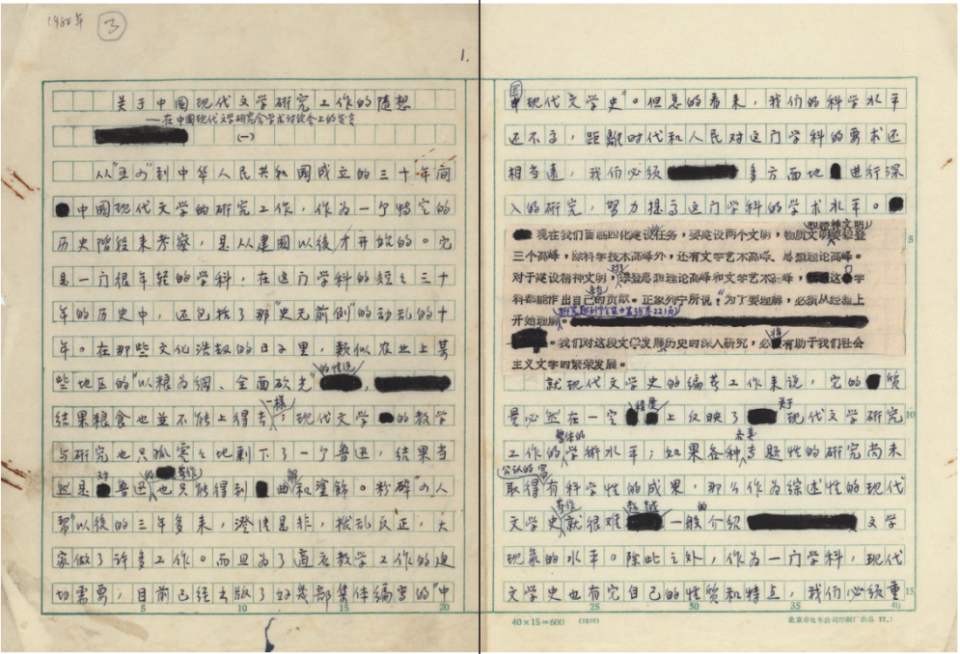 1980年 ③
1.
关于中国现代文学研究工作的随想
——在中国现代文学研究会学术讨论会上的发言
(一)
从"五四"到中华人民共和国成立的三十年间
中国现代文学的研究工作,作为一个特定的
历史阶段来考察,是从建国以後才开始的。它
是一门很年轻的学科,在这门学科的短短三十
年的历史中,还包括了那"史无前例"的动乱的十
年。在那些文化浩劫的日子里,類似农业上某
些地区的"以粮为纲、全面砍光"的情况,
结果粮食也並不能上得去一樣,现代文学的教学
与研究也只孤零零地剩下了一个鲁迅,结果当
然是对鲁迅的著作也只能得到歪曲和塗飾。粉碎"四人
幫"以後的三年多来,澄清是非,拨乱反正,大
家做了许多工作。而且为了适应教学工作的迫
切需要,目前已经出版了好幾部集体编写的"中
国现代文学史"。但总的看来,我们的科学水平
还不高,距離时代和人民对这门学科的要求还
相当遠,我们必须多方面地进行深
入的研究,努力提高这门学科的学术水平。
现在我们面临四化建设任务,要建设两个文明,物质文明和精神文明,要攀登
三个高峰,除科学技术高峰外,还有文学艺术高峰、思想理论高峰。
对于建设精神文明,对攀登思想理论高峰和文学艺术高峰,这门学
科都能作出自己的贡献。正象列宁所说:"为了要理解,必须从经验上
开始理解、研究,
。我们对这段文学发展历史的深入研究,必将有助于我们社会
主义文学的繁荣发展。
就现代文学史的编著工作来说,它的质
量必然在一定程度上反映了关于现代文学研究
工作的整体的学術水平;如果各种专题性的研究尚未
取得公认的富有科学性的成果,那么作为综述性的现代
文学史著作就很难超越一般的介绍文学
现象的水平。除此之外,作为一门学科,现代
文学史也有它自己的性質和特点,我们必须重
5 10 15 20 25 30 35 40
5
10
15
40×15=600